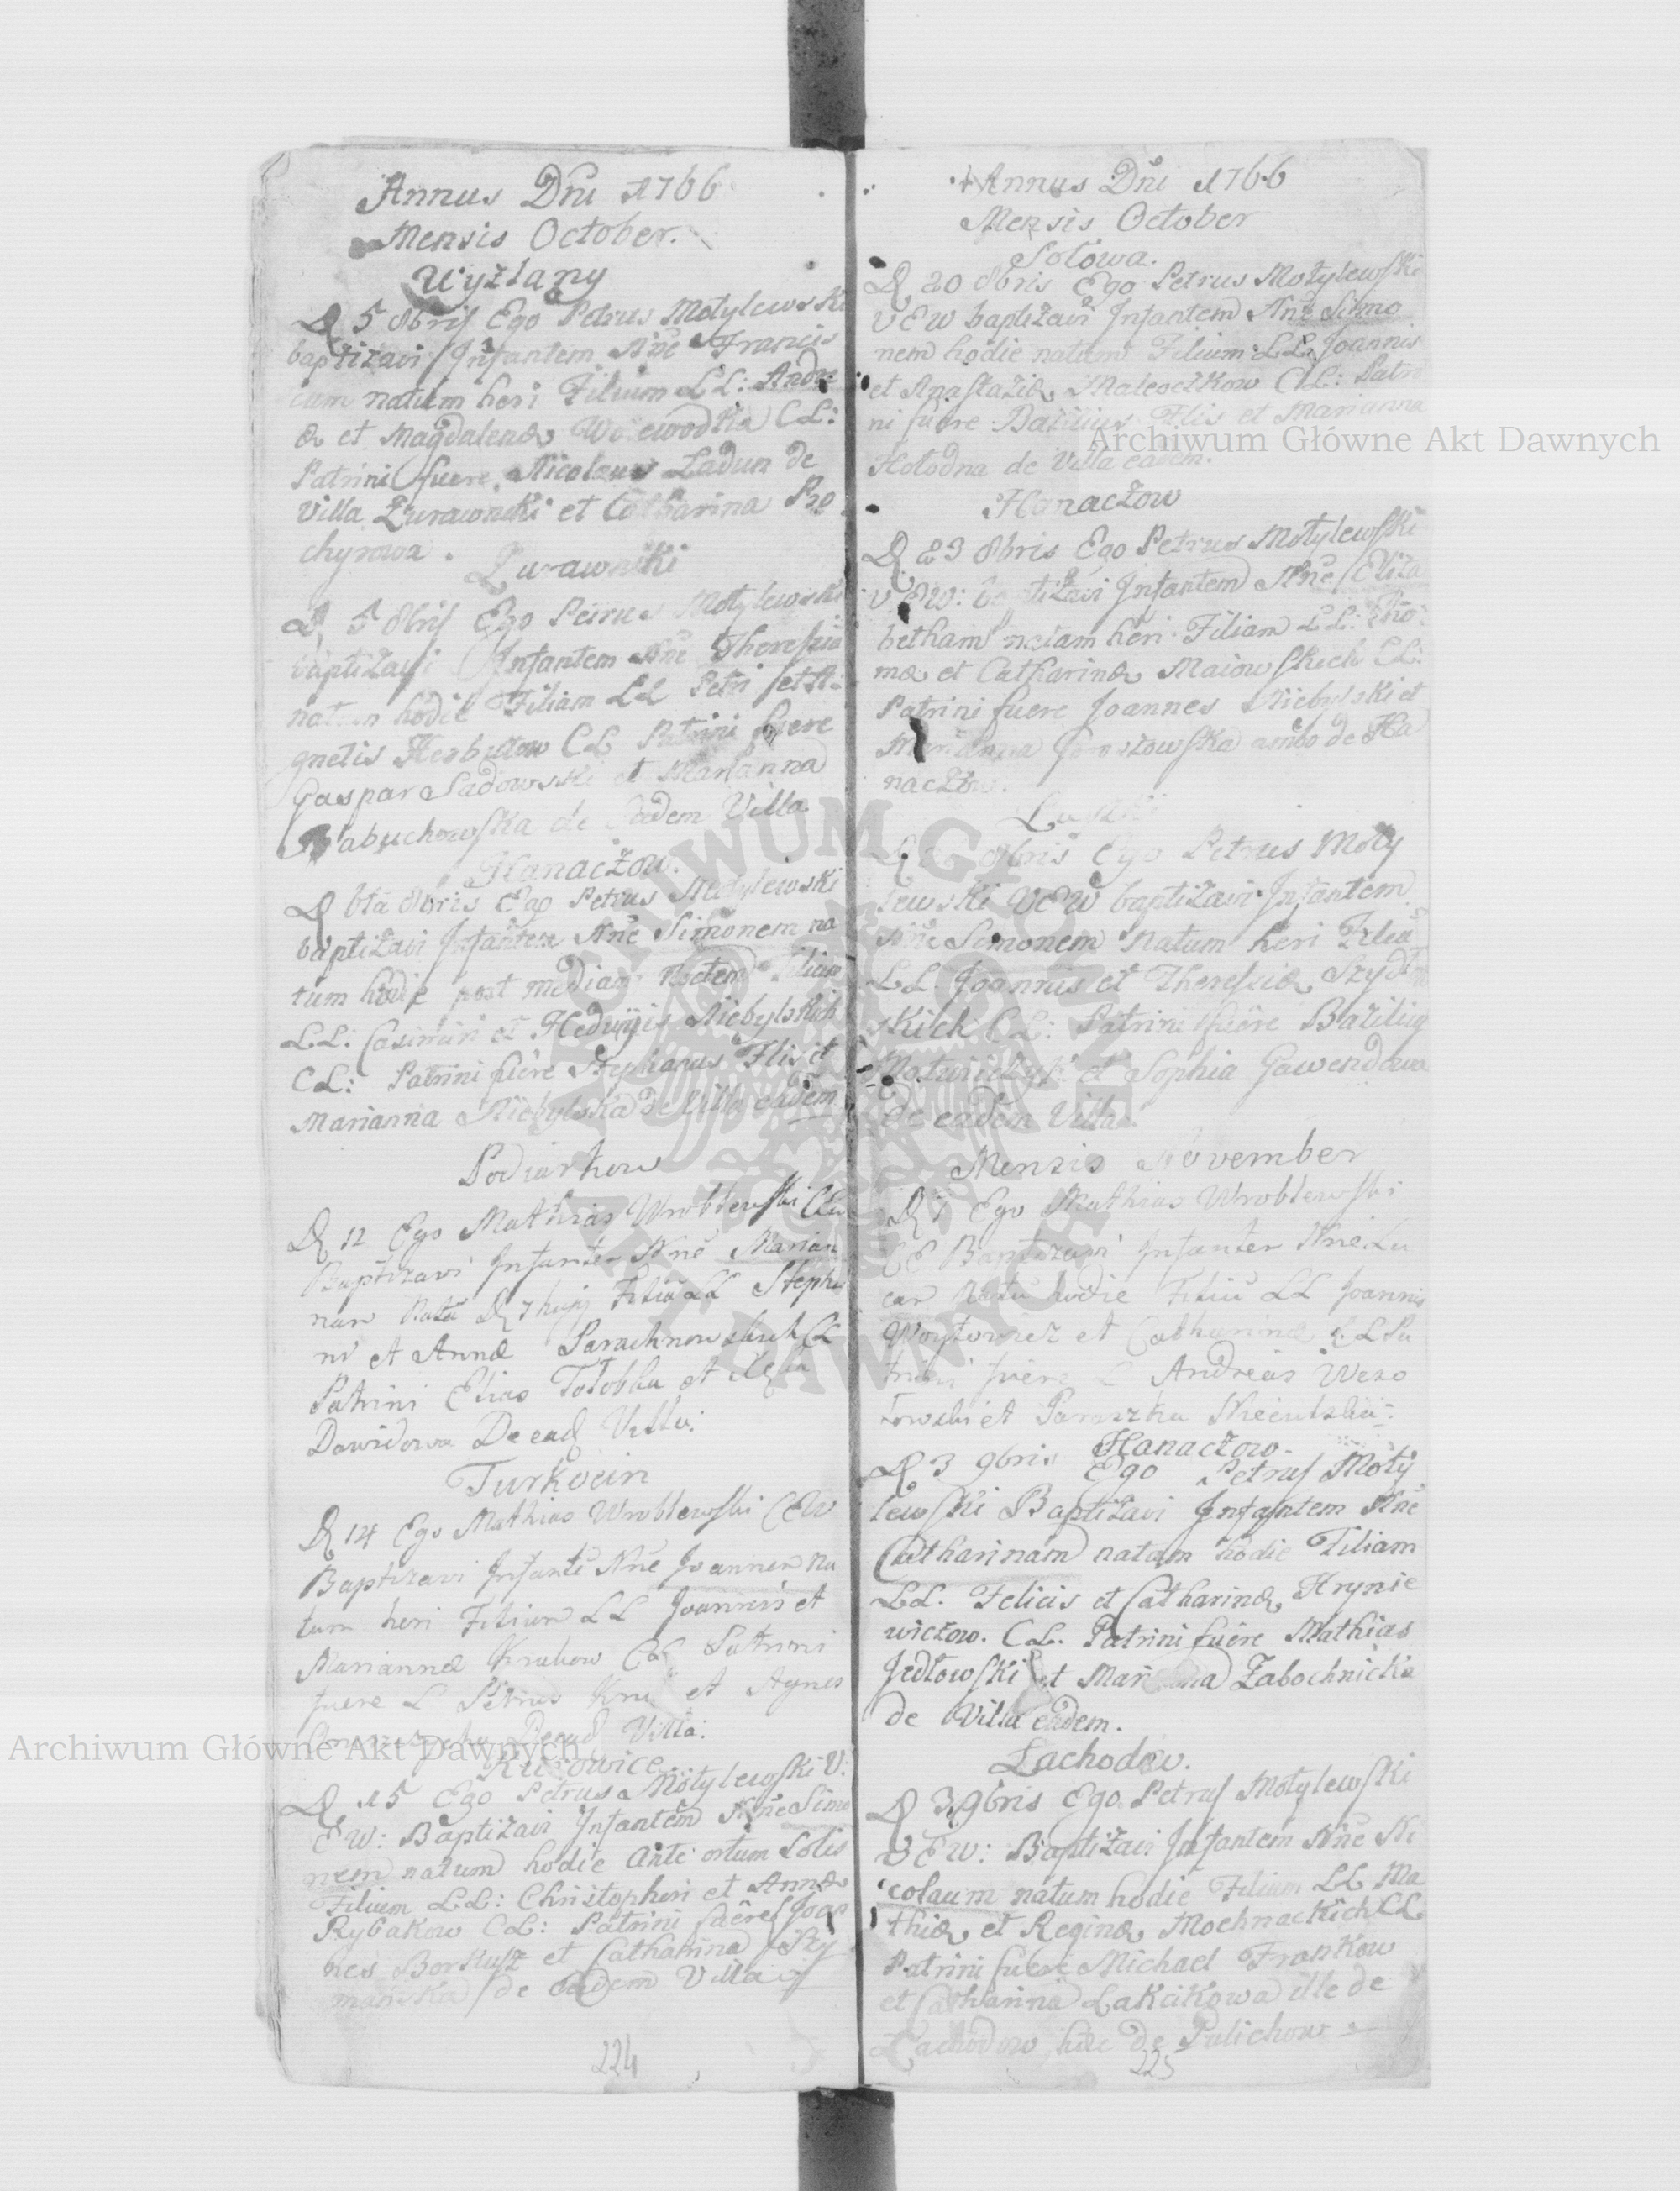 Annus Dni 1766
Mensis October.
Wyżlany
D 5 8bris Ego Petrus Motylewski
baptizavi Infantem Nne Francis
cum natum heri Filium LL: Andre
æ et Magdalenæ Woiewodka CL:
Patrini fuere Nicolaus Ładun de
Villa Żurawniki et Catharina Pro
chyrowa.
Żurawniki
D 5 8bris Ego Petrus Motylewski
baptizavi Infantem Nne Theresia
natam hodie Filiam LL Petri et A
gnetis CL Patrini fuere
Gaspar Sadowski et Marianna
de Eadem Villa
Hanaczow.
D 6ta 8bris Ego Petrus Motylewski
baptizavi Infantem Nne Simonem na
tum hodie post mediam Noctem Filium
LL: Casimiri et Hedvigis Niebylskich
CL: Patrini fuere Stephanus Flis et
Marianna Niebylska de Villa eadem
Podiarkow
D 12 Ego Mathias Wroblewski
Baptizavi Infante Nne Marian
nam Nata D 7 huj Filia LL Stepha
ni et Annæ CL
Patrini Elias et
Dawidowa De ead Villa:
Turkocin
D 14 Ego Mathias Wroblewski CEW
Baptizavi Infante Nne Joannem na
tum heri Filium LL Joannis et
Mariannæ Krukow CL Patrini
fuere L Petrus et Agnes
De ead Villa:
Kurowice
D 15 Ego Petrus Motylewski V:
EW: Baptizavi Infantem Nne Simo
nem natum hodie Ante ortum Solis
Filium LL: Christopheri et Annæ
Rybakow CL: Patrini fuere Joan
nes et Catharina Szy
manska de Eadem Villa
224
Annus Dni 1766
Mensis October
Sołowa.
D 20 8bris Ego Petrus Motylewski
VEW baptizavi Infantem Nne Simo
nem hodie natum Filium LL Joannis
et Anastaziæ CL: Patri
ni fuere Bazilius Flis et Marianna
Hołodna de Villa eadem.
Hanaczow
D 23 8bris Ego Petrus Motylewski
VEW: baptizavi Infantem Nne Eliza
betham natam heri Filiam LL: Tho
mæ et Catharinæ Maiowskich CL:
Patrini fuere Joannes Niebylski et
Marianna ambo de Ha
naczow.
D 8bris Ego Petrus Moty
lewski VEW baptizavi Infantem
Nne Simonem Natum heri Filiu
LL Joannis et Theresiæ Szydł
skich CL: Patrini fuere Bazilius
et Sophia Gawendowa
de eadem Villa.
Mensis November
D Ego Mathias Wroblewski
CE Baptizavi Infantem Nne Lu
cam Natu hodie Filiu LL Joannis
Woytowicz et Catharinæ CL Pa
trini fuere L Andreas
et Paraszka
Hanaczow.
D 3 9bris Ego Petrus Moty
lewski Baptizavi Infantem Nne
Catharinam natam hodie Filiam
LL. Felicis et Catharinæ Hrynie
wiczow. CL. Patrini fuere Mathias
Jedłowski et Marianna Zabochnicka
de Villa eadem.
Lachodow.
D 3 9bris Ego Petrus Motylewski
VEW: Baptizavi Infantem Nne Ni
colaum natum hodie Filium LL Ma
thiæ et Reginæ Mochnackich CL
Patrini fuere Michael Frankow
et Catharina Łakcikowa ille de
Lachodow hæc de Pulichow
225
Archiwum Główne Akt Dawnych
Archiwum Główne Akt Dawnych
ARCHIWUM GŁÓWNE AKT DAWNYCH